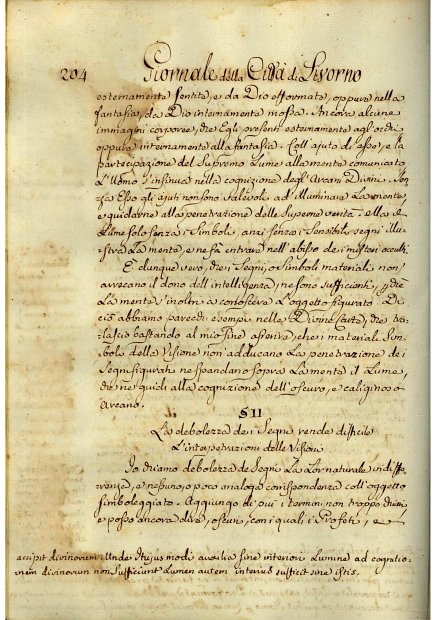 204 Giornale della Città di Livorno
esternamente sentita, e da Dio efformata, oppure nella
fantasia, da Dio internamente mossa. Ancora alcune
immagini corporee, che Egli presenti esternamente agl'occhi
oppure internamente alla fantasia. Coll'ajuto di esse, e la
partecipazione del Supremo Lume alla mente comunicato
L'Uomo s'insinua nella cognizione degl'Arcani Divini. Sen-
za Esso gli ajuti non sono valevoli ad illuminare La mente,
e guidarne alla penetrazione delle Supreme verità. ella il
Lume solo senza i Simboli, anzi senza i Sensibili segni illu-
stra La mente, e ne fa entrare nell'abisso de i misteri occulti
È dunque vero, che i Segni, o Simboli materiali non
arrecano il dono dell'intelligenza, ne sono sufficienti, perche
La mente s'inoltri a conoscere L'oggetto figurato. Di
ciò abbiamo parecchi esempi nelle Divine Carte, che tra-
lascio bastando al mio fine asserire, che i materiali Sim-
boli delle Visione non adducano La penetrazione de i
Segni figurati ne spandano sopra La mente il Lume,
che ne guidi alla cognizione dell'oscuro, e caliginoso
Arcano.
§ II
La debolezza de i Segni rende difficile
L'interpetrazion delle Visioni
Io chiamo debolezza de Segni La Lor naturale indiffe-
renza, e nessuno, o poco analoga corrispondenza coll'oggetto
simboleggiato. Aggiungo di più i termini non troppo chiari
e posso ancora dire, oscuri, con i quali i Profeti, e
accipit divinorum: Unde Hujus modi auxilia sine interiori Lumine ad cognitio-
nem divinorum non Sufficiunt Lumen autem interius sufficit sine istis.